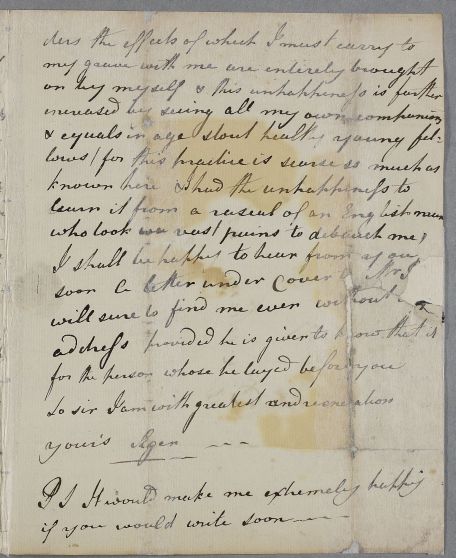 ders the effects of which I must carry to
my grave with me are entirely brought
on by myself & this unhappiness is further
increased by seeing all my own companions
& equals in age stout healthy young fel-
lows / for this practice is scarse so much as
known here & I had the unhappiness to
learn it from a rascal of an English man
who took vast pains to debauch me /
I shall be happy to hear from you
soon a letter under Cover to Mr
will sure to find me even without
address provided he is given to know that it
for the person whose he layed before you
So sir I am with greatest
yours Agen
P S It would make me extremely happy
if you would write soon